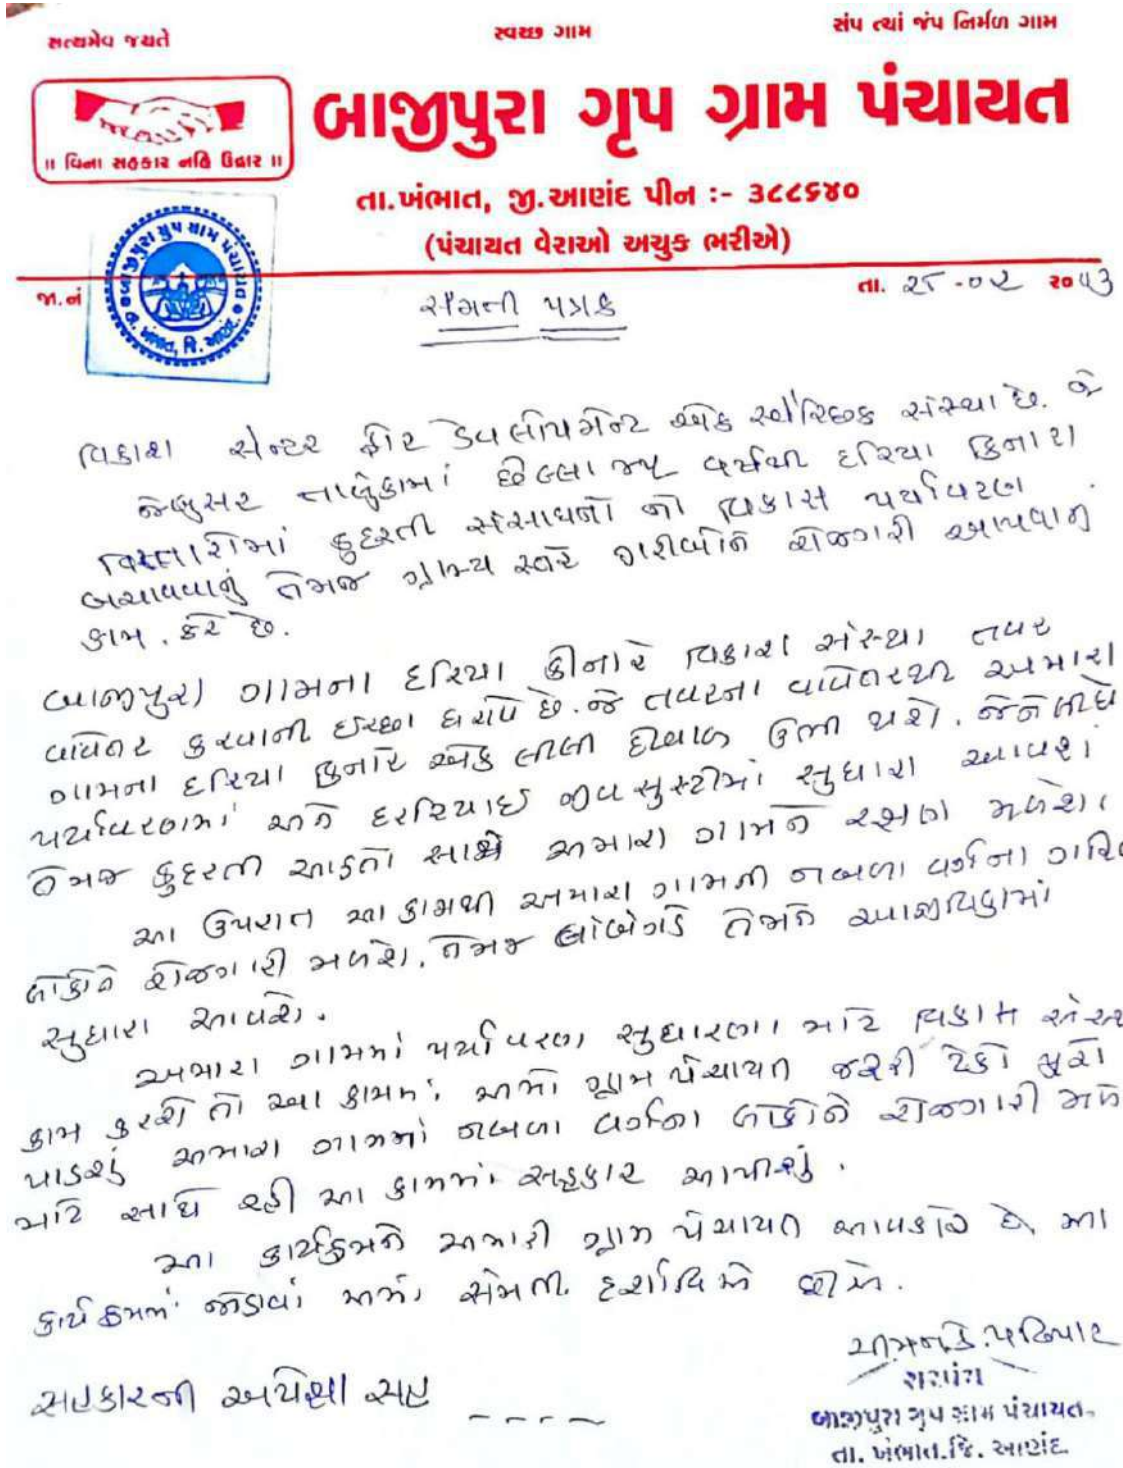 સત્યમેવ જયતે
સ્વચ્છ ગામ
સંપ ત્યાં જંપ નિર્મળ ગામ
બાજીપુરા ગૃપ ગ્રામ પંચાયત
॥ વિના સહકાર નહિ ઉદ્ધાર ॥
તા.ખંભાત, જી.આણંદ પીન :- ૩૮૮૬૪૦
(પંચાયત વેરાઓ અચુક ભરીએ)
જા.નં
બાજીપુરા ગૃપ ગ્રામ પંચાયત
તા. ખંભાત, જિ. આણંદ.
તા. ૨૮ -૦૨ ૨૦
સંમતી પત્રક
વિકાશ સેન્ટર ફોર ડેવલોપમેન્ટ એક સ્વૈચ્છિક સંસ્થા છે. જે
જંબુસર તાલુકામાં છેલ્લા વર્ષથી દરિયા કિનારા
વિસ્તારોમાં કુદરતી સંસાધનો નો વિકાસ પર્યાવરણ
બચાવવાનું તેમજ ગ્રામ્ય સ્તરે ગરીબોને રોજગારી આપવાનુ
કામ. કરે છે.
બાજીપુરા ગામના દરિયા કીનારે વિકાશ સંસ્થા તવર
વાવેતર કરવાની ઈચ્છા ધરાવે છે. જે તવરના વાવેતરથી અમારા
ગામના દરિયા કિનારે એક લીલી દીવાલ ઉભી થશે. જેને લીધે
પર્યાવરણમાં અને દરરિયાઈ જીવ સુસ્ટીમાં સુધારા આવશે
તેમજ કુદરતી આફતો સામે અમારા ગામને રક્ષણ મળશે.
આ ઉપરાત આ કામથી અમારા ગામની નબળા વર્ગના ગરિબ
લોકોને રોજગારી મળશે. તેમજ લાંબેગાડે તેમને આજીવિકામાં
સુધારા આવશે.
અમારા ગામમાં પર્યાવરણ સુધારણા માટે વિકાસ સંસ્થા
કામ કરશે તો આ કામમાં અમો ગ્રામ પંચાયત જરૂરી ટેકો પુરો
પાડશું અમારા ગામમાં નબળા વર્ગના લોકોને રોજગારી મળે
માટે સાથે રહી આ કામમાં સહકાર આપીશું.
આ કાર્યક્રમને અમારી ગ્રામ પંચાયત આવકારે છે. આ
કાર્યક્રમમાં જોડાવા અમો સંમતી દર્શાવિએ છીએ.
સહકારની અપેક્ષા સહ ----
પઢિયાર
સરપંચ
બાજીપુરા ગૃપ ગ્રામ પંચાયત.
તા. ખંભાત.જિ. આણંદ